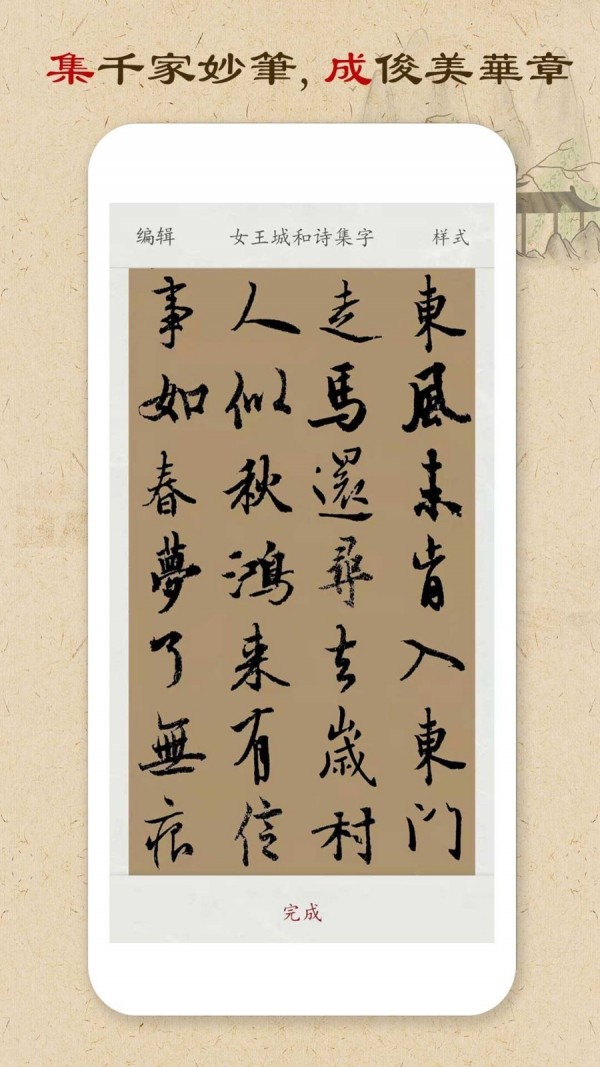 集千家妙筆,成俊美華章
编辑 女王城和诗集字 样式
東風未肯入東門
走馬還尋去歲村
人似秋鴻来有信
事如春夢了無痕
完成